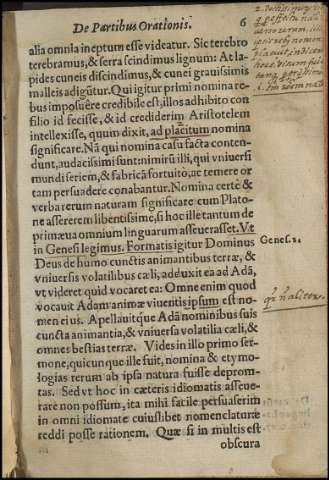 De Partibus Orationis. 6
alia omnia ineptum esse videatur. Sic terebro
terebramus, & serra scindimus lignum: At la-
pides cuneis discindimus, & cunei grauissimis
malleis adigūtur. Qui igitur primi nomina re-
bus imposuêre credibile est, illos adhibito con
silio id fecisse, & id crediderim Aristotelem
intellexisse, quum dixit, ad placitum nomina
significare. Nā qui nomina casu facta conten-
dunt, audacissimi sunt: nimirū illi, qui vniuersi
mundi seriem, & fabricā fortuito, ac temere or
tam persuadere conabantur. Nomina certè &
verba rerum naturam significare cum Plato-
ne assererem libentissime, si hoc ille tantum de
primæua omnium linguarum asseuerasset. Vt
in Genesi legimus. Formatis igitur Dominus
Genes. 2.
Deus de humo cunctis animantibus terræ, &
vniuersis volatilibus cæli, adduxit ea ad Adā,
vt videret quid vocaret ea: Omne enim quod
vocauit Adam animæ viuentis ipsum est no-
men eius. Apellauitque Adā nominibus suis
cuncta animantia, & vniuersa volatilia cæli, &
omnes bestias terræ. Vides in illo primo ser-
mone, quicunque ille fuit, nomina & etymo-
logias rerum ab ipsa natura fuisse deprom-
tas. Sed vt hoc in cæteris idiomatis asseue-
rare non possum, ita mihi facilè persuaserim
in omni idiomate cuiuslibet nomenclaturæ
reddi posse rationem. Quæ si in multis est
obscura